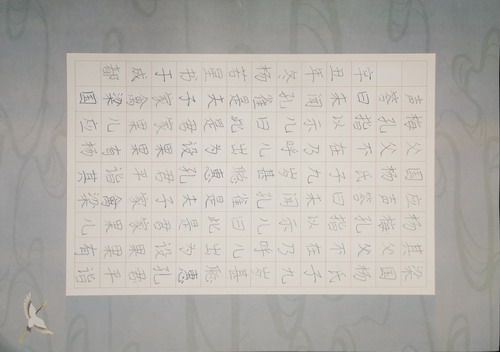 梁国杨氏子九岁甚聪惠孔君平诣
其父父不在乃呼儿出为设果果有
杨梅孔指以示儿曰此是君家果儿
应声答曰未闻孔雀是夫子家禽梁
国杨氏子九岁甚聪惠孔君平诣其
父父不在乃呼儿出为设果果有杨
梅孔指以示儿曰此是君家果儿应
声答曰未闻孔雀是夫子家禽梁国
辛丑年冬杨若星书于成都